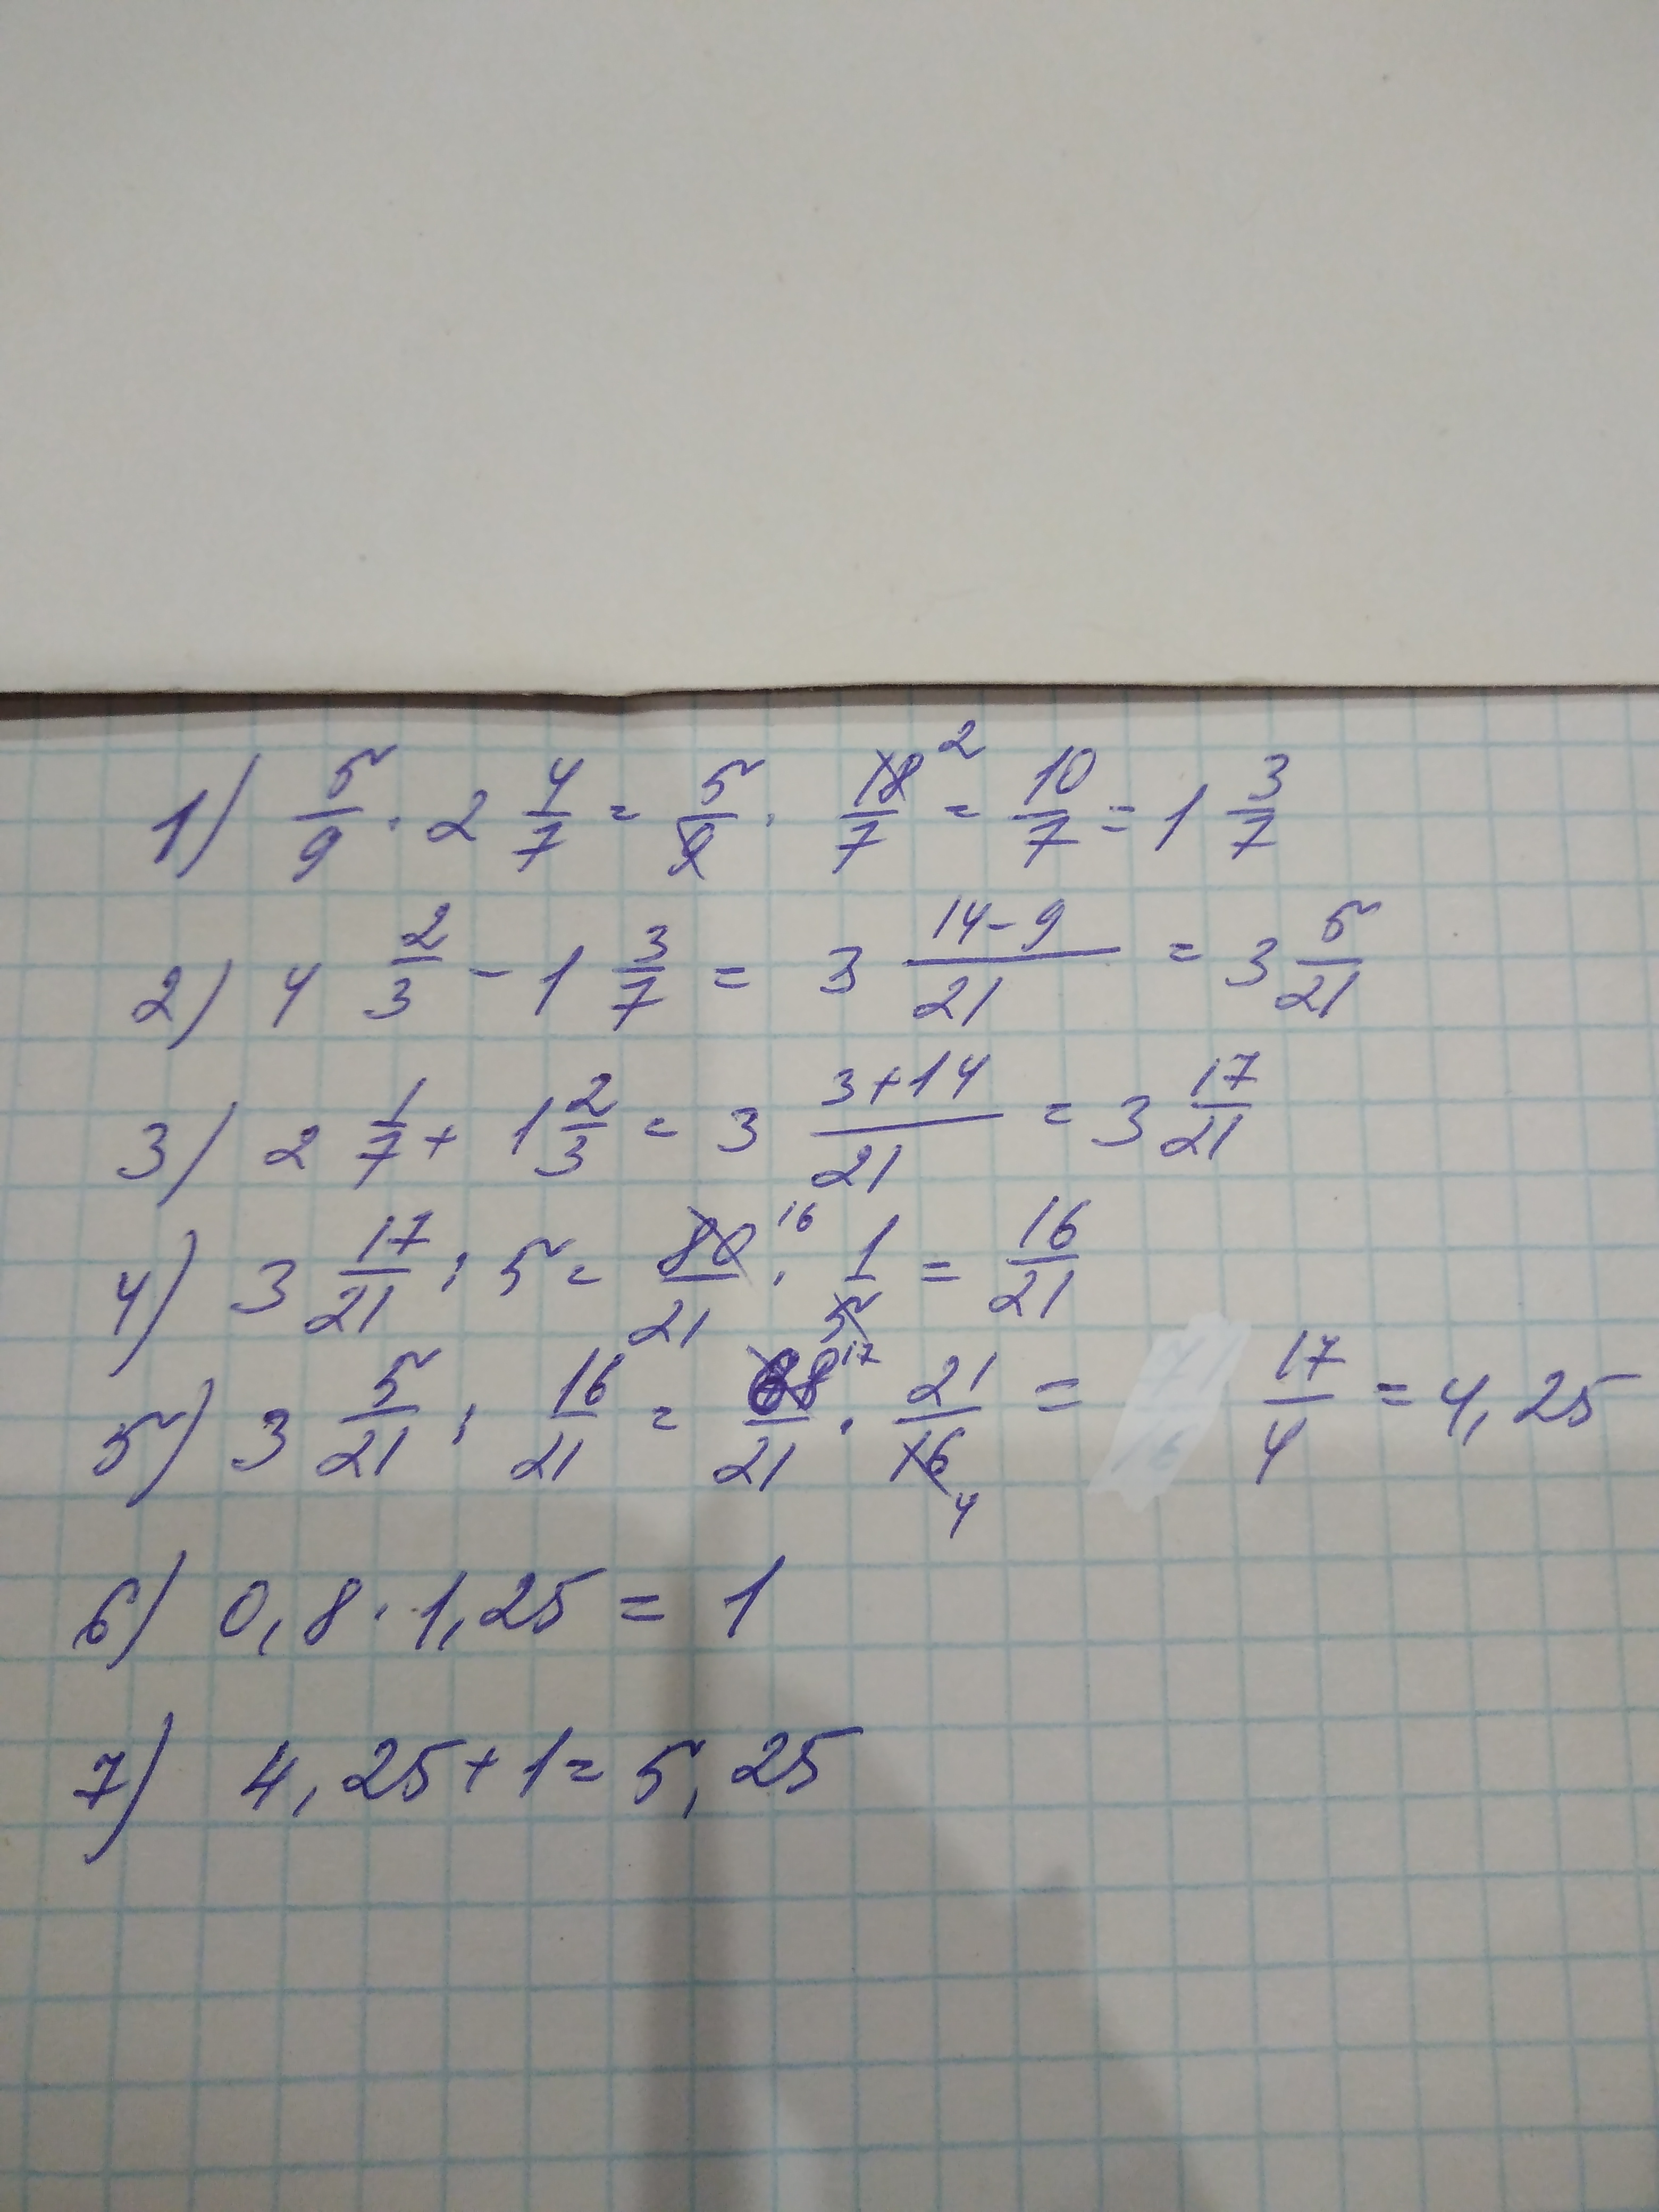 1) 5/9 · 2 4/7 = 5/9 · 18/7 2 = 10/7 = 1 3/7
2) 4 2/3 - 1 3/7 = 3 (14-9)/21 = 3 5/21
3) 2 1/7 + 1 2/3 = 3 (3+14)/21 = 3 17/21
4) 3 17/21 : 5 = 80/21 16 · 1/5 = 16/21
5) 3 5/21 : 16/21 = 68/21 17 · 21/16 4 = 17/4 = 4,25
6) 0,8 · 1,25 = 1
7) 4,25 + 1 = 5,25